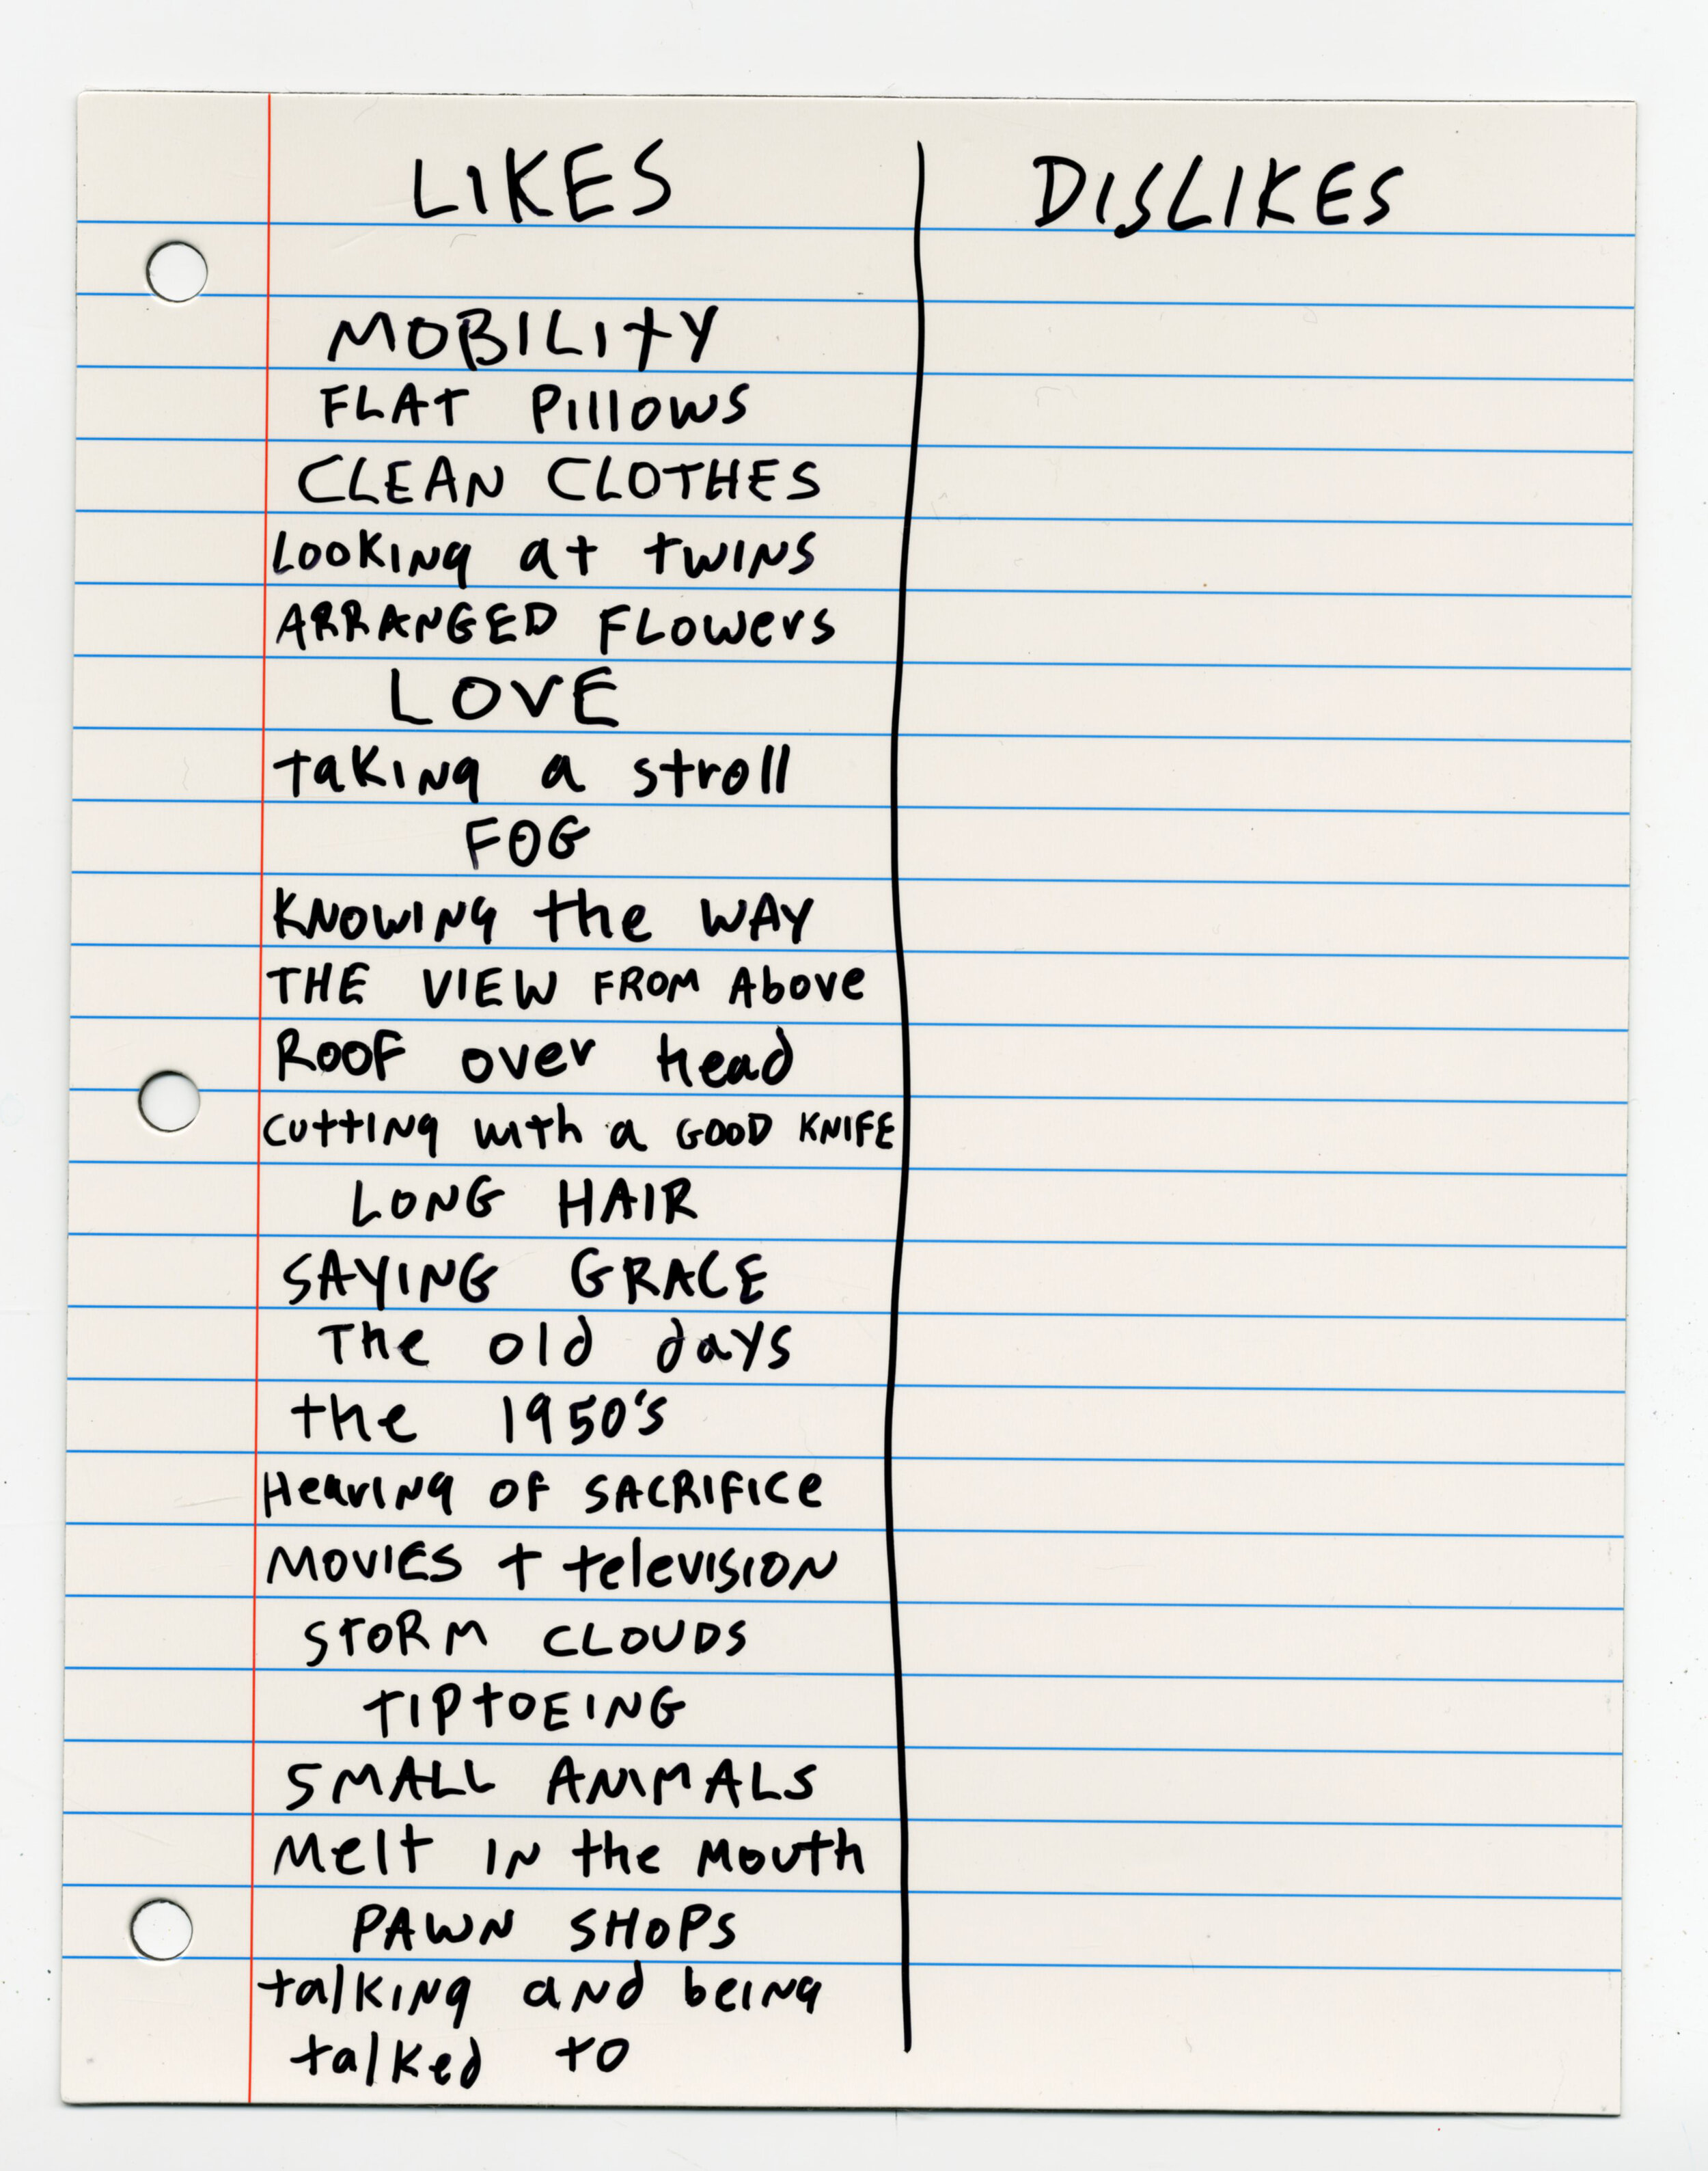 LIKES
DISLIKES
MOBILITY
FLAT PIllOWS
CLEAN CLOTHES
LOOKING at tWINS
ARRANGED FLOWers
LOVE
taKING a stroll
FOG
KNOWING the WAY
THE VIEW FROM Above
ROOF over head
cuttING with a GOOD KNIFE
LONG HAIR
SAYING GRACE
The old days
the 1950's
HearING OF SACRIFICe
MOVIES + teleVISION
STORM CLOUDS
TIPtOEING
SMALL ANIMALS
Melt IN the Mouth
PAWN SHOPS
talKING aNd beING
talKed to